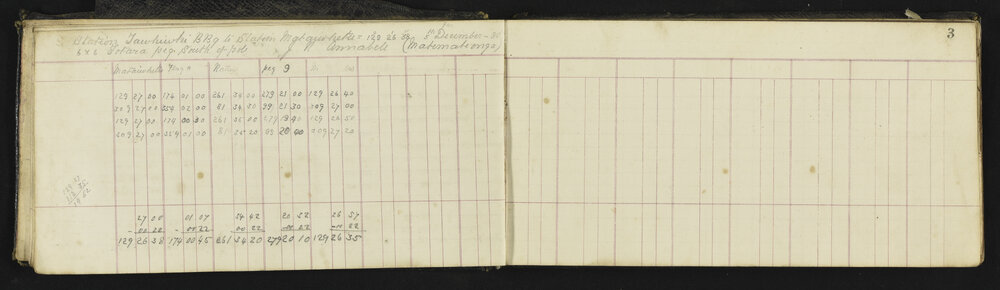 3
Station Tawhiwhi BBg to Station Matawhete = 129 26 38 5th December
6x6 Totara peg South of pole Annabell (Matemateonga)
Matawhete peg 9
129 27 00 174 01 00 261 34 00 279 21 00 129 26 40
309 27 00 354 02 00 81 34 30 99 21 30 309 27 00
129 27 00 174 00 30 261 35 00 279 19 40 129 26 50
309 27 00 354 01 00 81 35 20 99 20 00 309 27 20
27 00 01 07 34 42 20 32 26 57
00 22 00 22 00 22 00 22 00 22
129 26 38 174 00 45 261 34 20 279 20 10 129 26 35